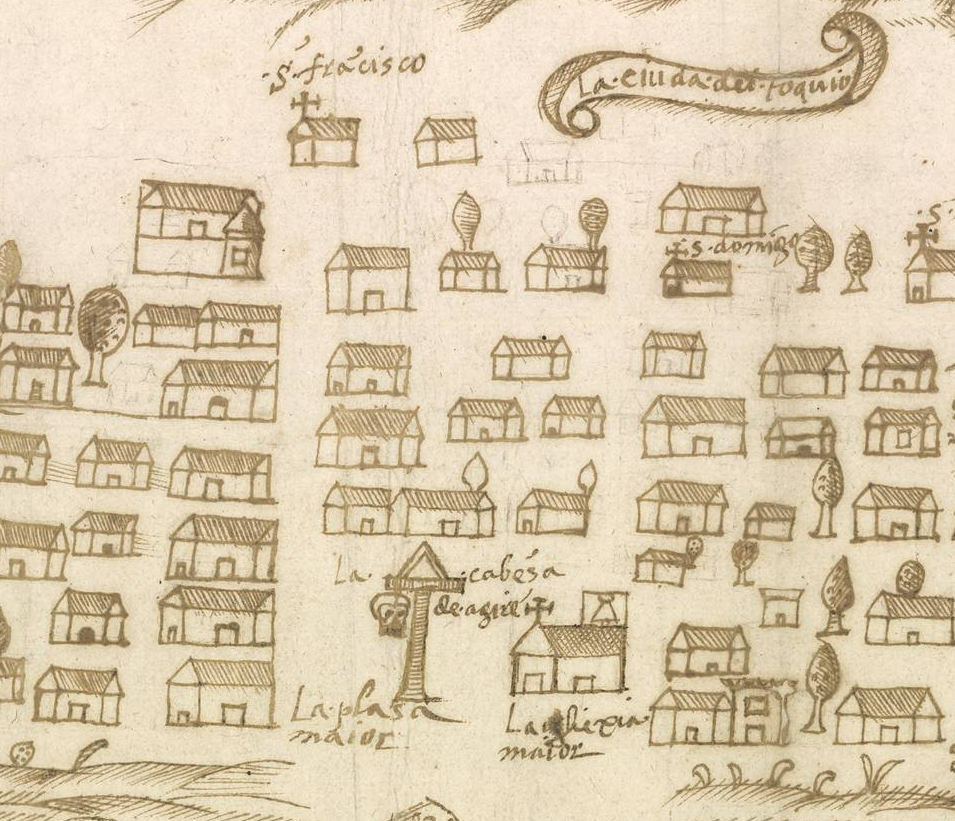 S. frãcisco
La. Ciudadel. toquio
S. domīgo
S.
La. cabesa
de agire
La plasa
maior
La gliexia
maior